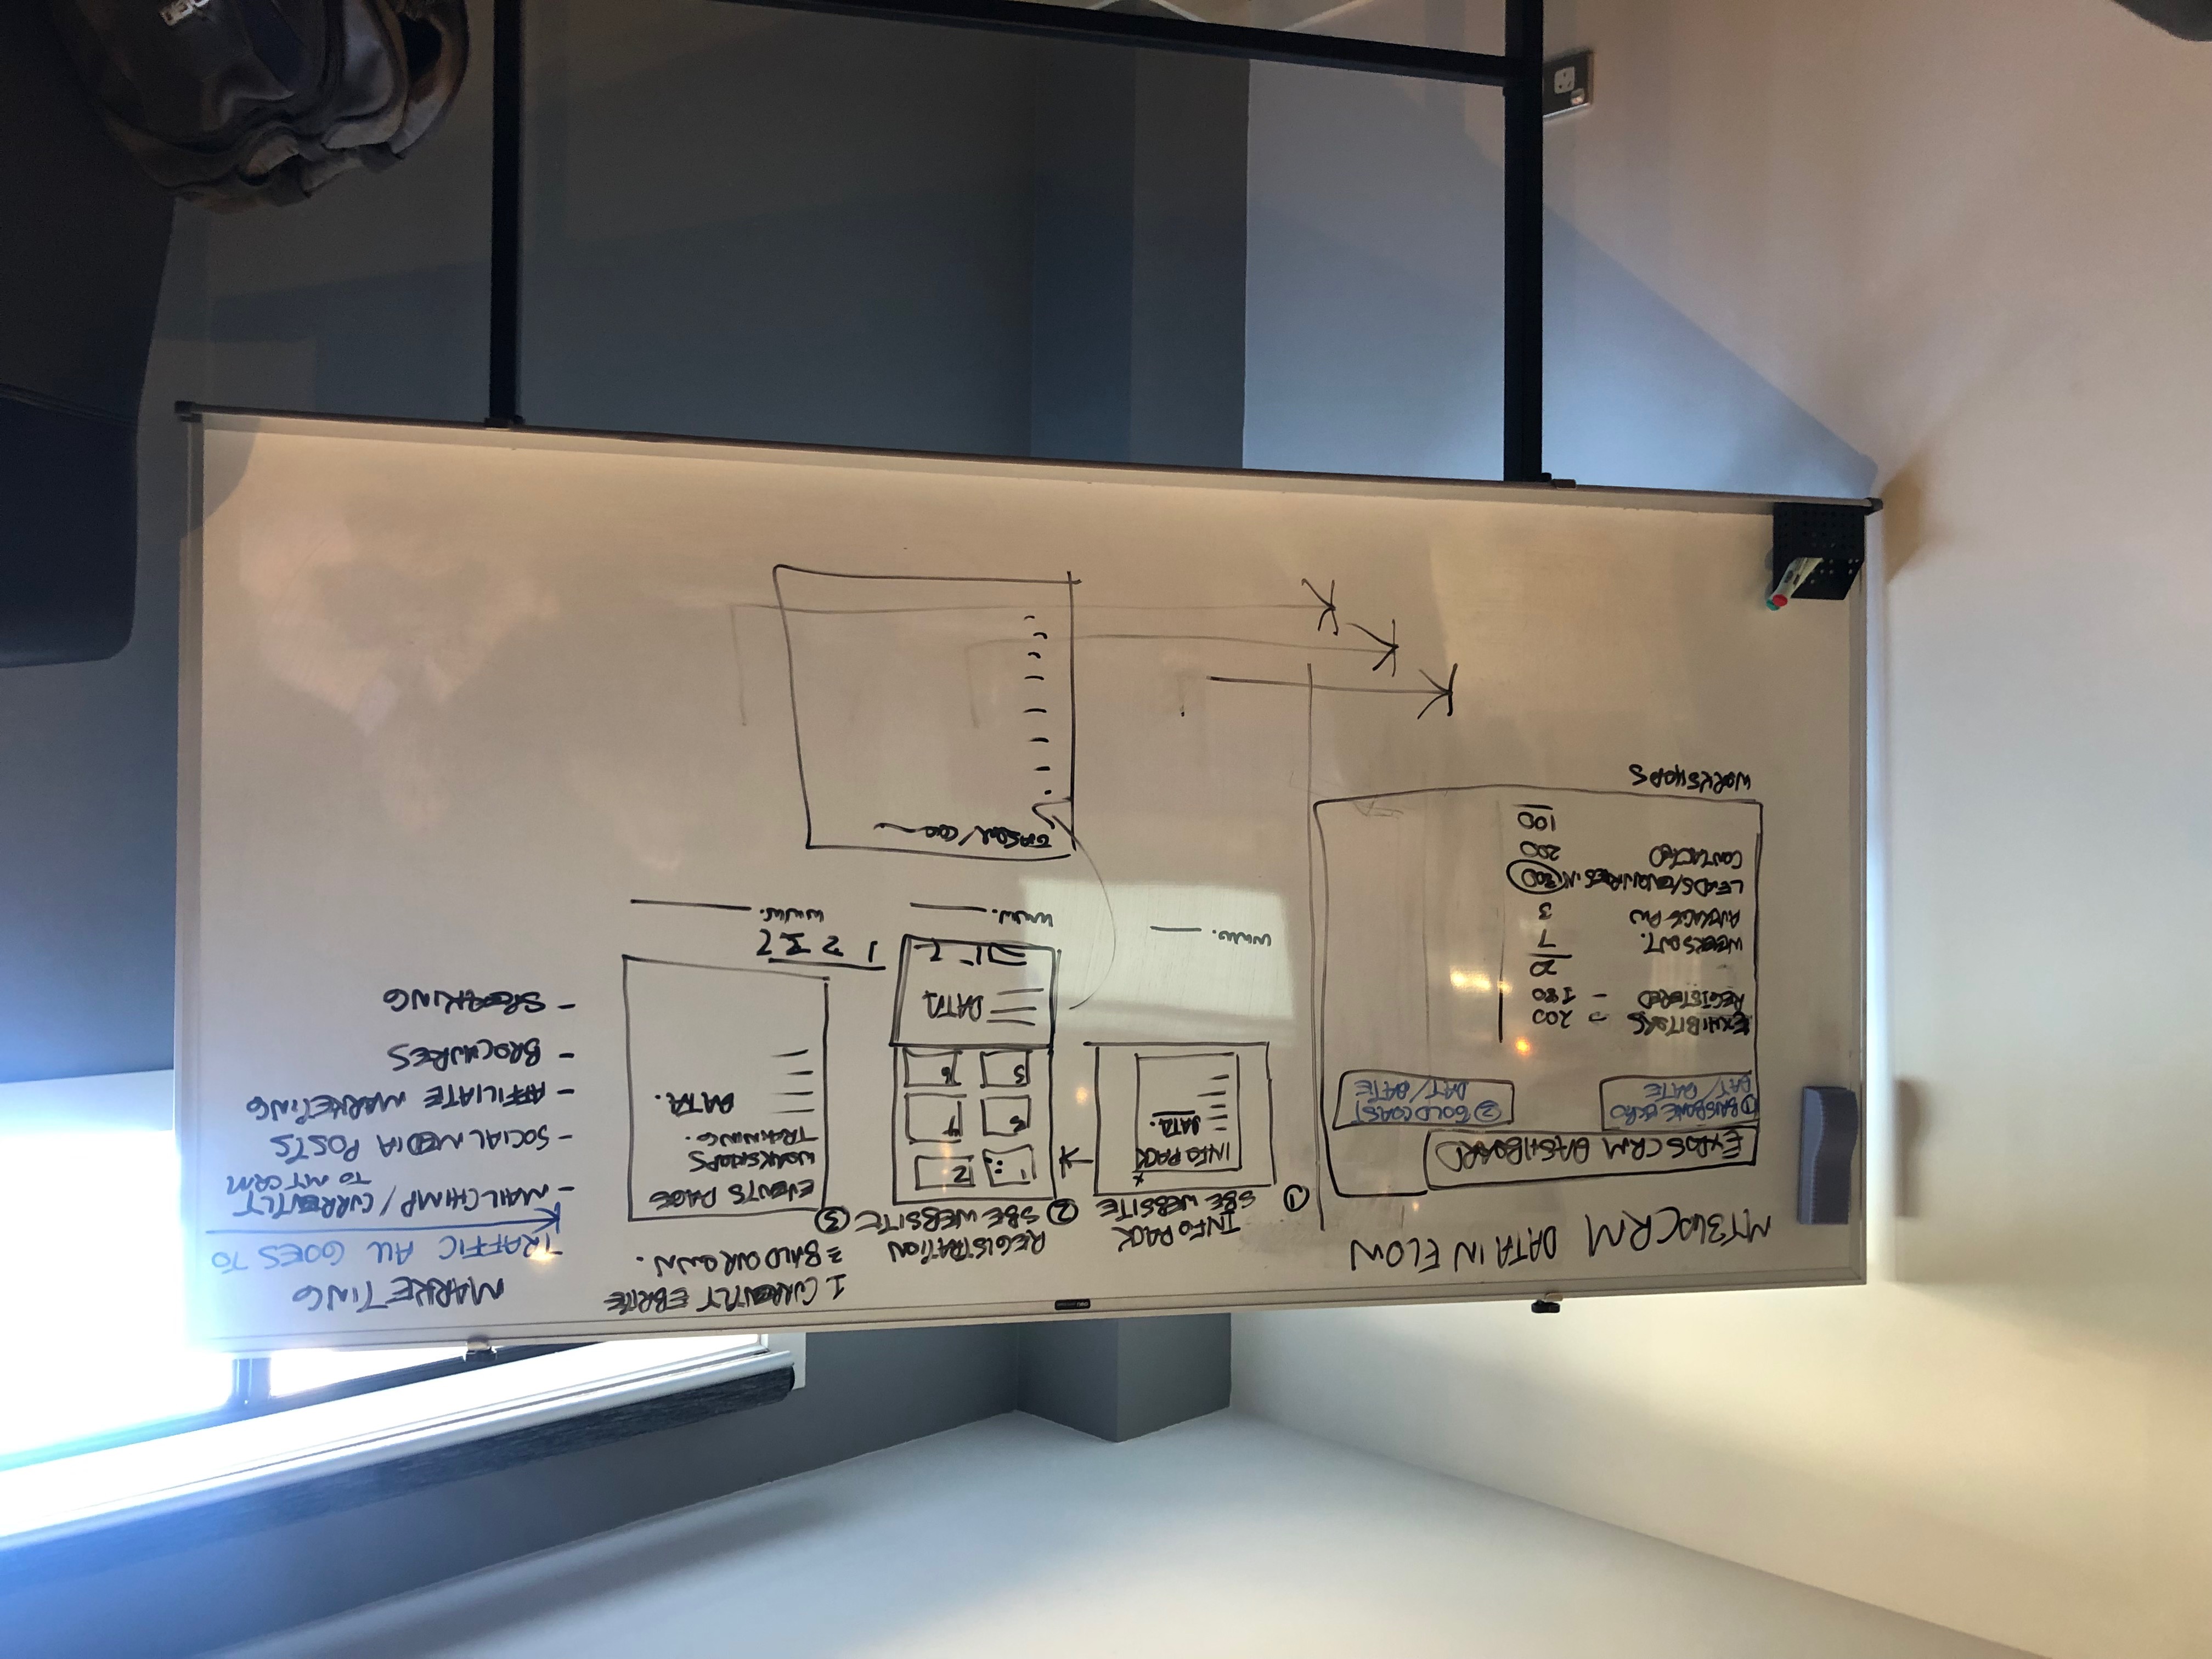 MY360CRM DATA IN FLOW
EXPOS CRM DASHBOARD
① BRISBANE EXPO
DAY/DATE
② GOLD COAST
DAY/DATE
EXHIBITORS - 200
REGISTERED - 180
20
WEEKS OUT. 7
AVERAGE PW 3
LEADS/ENQUIRIES IN 300
CONTACTED 200
100
WORKSHOPS
① INFO PACK
SBE WEBSITE
x
INFO PACK
DATA.
www.
REGISTRATION
② SBE WEBSITE
1 2
4
5 6
DATA
www.
1 CURRENTLY EBRITE
2 BUILD OUR OWN.
③
EVENTS PAGE
WORKSHOPS
TRAINING.
DATA.
www.
MARKETING
TRAFFIC ALL GOES TO
- MAILCHIMP / CURRENTLY
TO MY CRM
- SOCIAL MEDIA POSTS
- AFFILIATE MARKETING
- BROCHURES
- SPEAKING